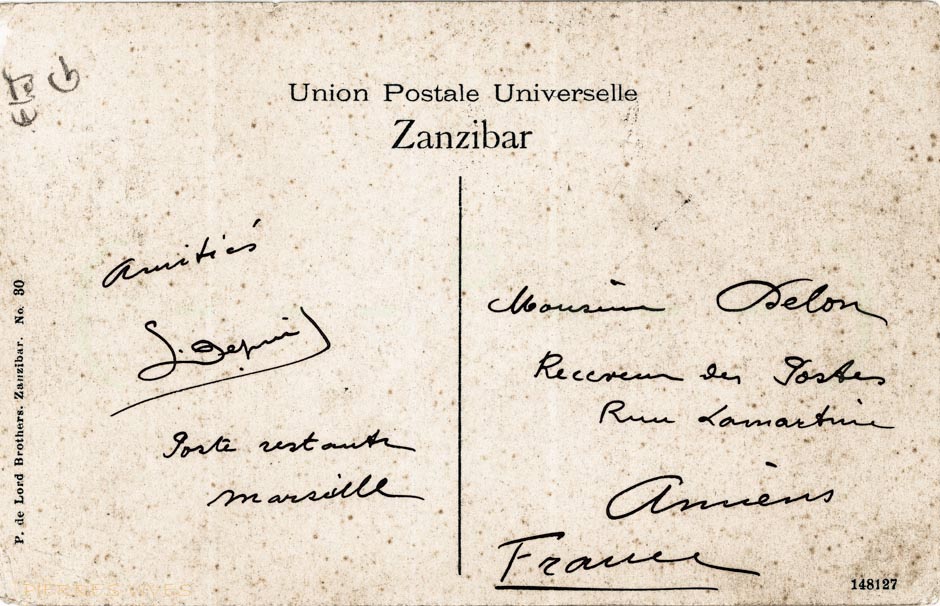 Union Postale Universelle
Zanzibar
Amitiés
Poste restante
Marseille
Monsieur Delon
Receveur des Postes
Rue Lamartine
Amiens
France
P. de Lord Brothers. Zanzibar. No. 30
148127